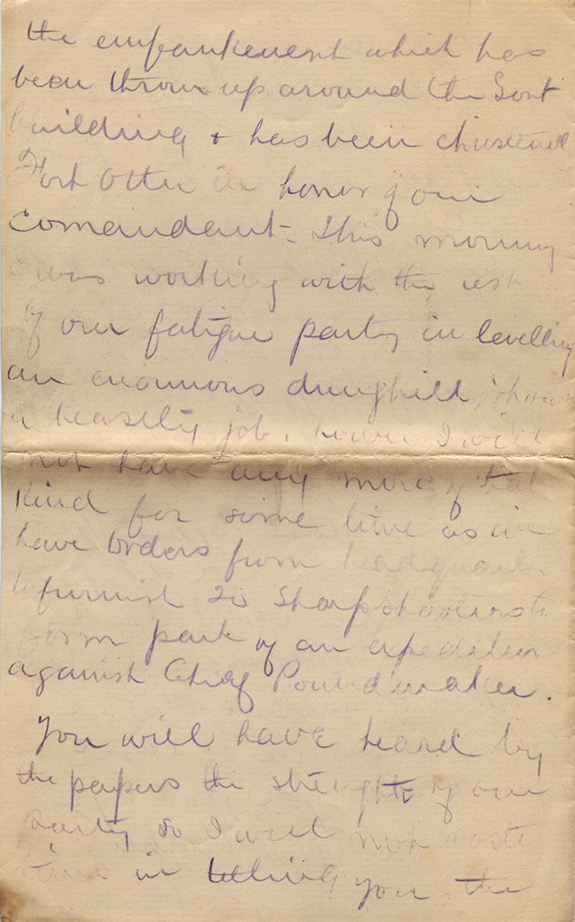 the embankement which has
been thrown up around the Govt
building & has been christened
Fort Otter in honor of our
comandant. This morning
I was working with the rest
of our fatigue party in levelling
an enormous dunghill,
a beastly job, I will
not have any more of that
kind for some time as we
have orders from headquarters
to furnish 20 Sharpshooters to
form part of an expedition
against Chief Poundmaker.
You will have heard by
the papers the strenght of our
party so I will not waste
time in telling you, the